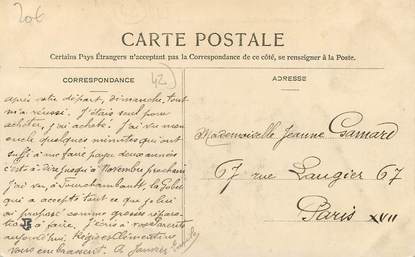 206
CARTE POSTALE
Certains Pays Étrangers n'acceptant pas la Correspondance de ce côté, se renseigner à la Poste.
CORRESPONDANCE
42
ADRESSE
après votre départ, dimanche, tout
m'a réussi. J'étais seul pour
acheter, j'ai acheté. J'ai vu mon
oncle quelques minutes qui ont
suffi à me faire payer deux années
c'est à dire jusqu'à Novembre prochain
j'ai vu, à Fourchambault,
qui a accepté tout ce que je lui
ai proposé comme grosses répara
à faire. J'écris à vos Parents
aujourd'hui.
vous embrassent. A
Mademoiselle Jeanne Gamard
67 rue Laugier 67
Paris XVII